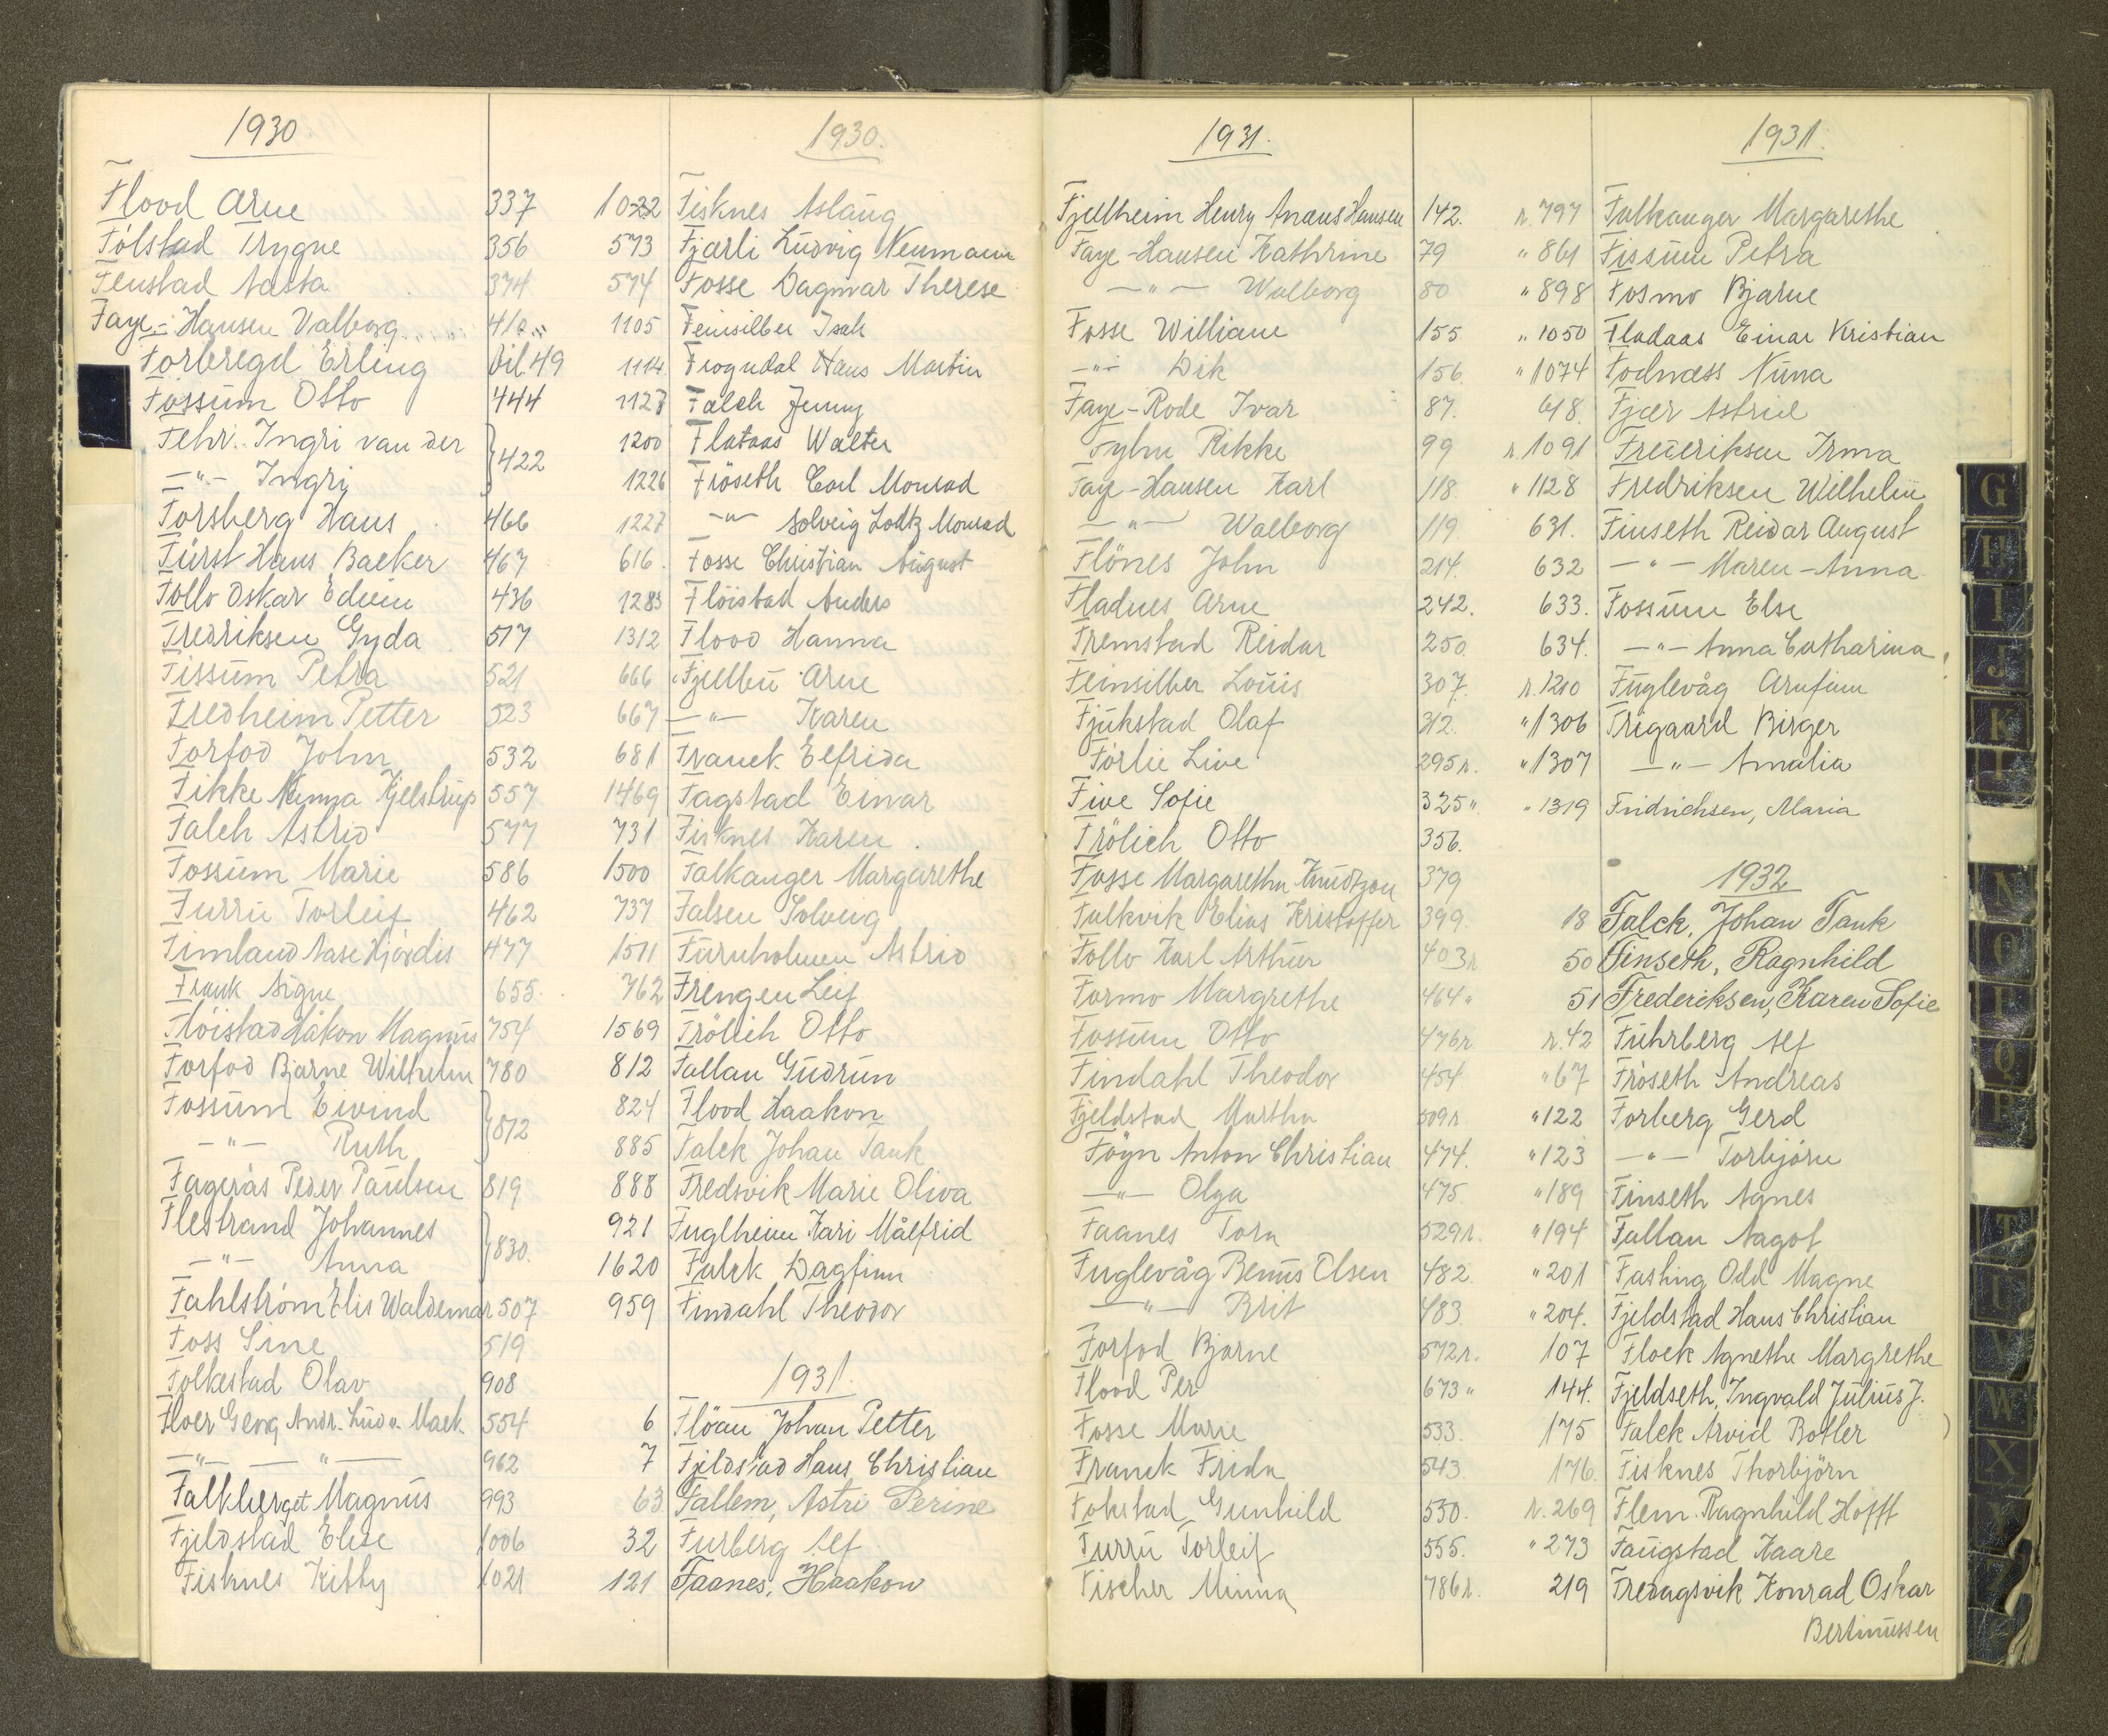 1930
Flood Arne 337
Følstad Trygve 356
Fenstad Aasta 374
Faye-Hansen Valborg 410
Forbregd Erling bil. 49
Fossum Otto 444
Fehr. Ingri van der } 422
—"— Ingrij
Forsberg Hans 466
Fürst Hans Backer 467
Follo Oskar Edvin 436
Fredriksen Gyda 517
Fissum Petra 521
Fredheim Petter 523
Forfod John 532
Fikke Nanna Kjelstrup 557
Falch Astrid 577
Fossum Marie 586
Furru Torleif 462
Fimland Aase Hjørdis 477
Frank Signe 655
Fløistad Håkon Magnus 754
Forfod Bjarne Wilhelm 780
Fossum Eivind } 812
—"— Ruth
Fagerås Peder Paulsen 819
Flestrand Johannes } 830.
—"— Anna
Fahlstrøm Elis Waldemar 507
Foss Sine 519
Folkestad Olav 908
Floer Georg Andr. Ludv. Mack 554
—"— —"— 962
Falkberget Magnus 993
Fjeldstad Else 1006
Fisknes Kitty 1021
1930.
1022 Fisknes Aslaug
573 Fjærli Ludvig Neumann
574 Fosse Dagmar Therese
1105 Feinsilber Isak
1114 Frogndal Hans Martin
1127 Falch Jenny
1200 Flataas Walter
1226 Frøseth Carl Monrad
1227 —"— Solveig Lodtz Monrad
616. Fosse Christian August
1283 Fløistad Anders
1312 Flood Hanna
666 Fjellbu Arne
667 —"— Karen
681 Franck Elfrida
1469 Fagstad Einar
731 Fisknes Karen
1500 Falkanger Margarethe
737 Falsen Solveig
1511 Furuholmen Astrid
762 Frengen Leif
1569 Frölich Otto
812 Fallan Gudrun
824 Flood Haakon
885 Falck Johan Tank
888 Fredsvik Marie Oliva
921 Fuglheim Kari Målfrid
1620 Falck Dagfinn
959 Findahl Theodor
1931.
6 Flöan Johan Petter
7 Fjeldstad Hans Christian
63 Fallem, Astri Perine
32 Furberg Alf
121 Faanes, Haakon
1931.
Fjellheim Henry Anæus Hansen 142.
Faye-Hansen Kathrine 79
—"— Walborg 80
Fosse William 155
—"— Dik 156.
Faye-Rode Ivar 87.
Fylm Rikke 99
Faye-Hansen Karl 118.
—"— Walborg 119.
Flönes John 214.
Fladnes Arne 242.
Fremstad Reidar 250.
Feinsilber Louis 307.
Fjukstad Olaf 312.
Førlie Live 295 r.
Five Sofie 325 "
Frölich Otto 356.
Fosse Margaretha Knudtzon 379
Falkvik Elias Kristoffer 399
Follo Karl Arthur 403 r
Formo Margrethe 464 "
Fossum Otto 476 r.
Findahl Theodor 454
Fjeldstad Martha 509 r
Föyn Anton Christian 474.
—"— Olga 475
Faanes Tora 529 r.
Fuglevåg Bernts Olsen 482.
—"— Brit 483.
Forfod Bjarne 572 r.
Flood Per 673 "
Fosse Marie 533.
Franck Frida 543.
Fokstad Gunhild 550.
Furru Torleif 555.
Fischer Minna 786 r.
1931.
r. 797 Falkanger Margarethe
" 861 Fissum Petra
" 898 Fosmo Bjarne
" 1050 Fladaas Einar Kristian
" 1074 Fodnæss Nuna
618. Fjær Astrid
r. 1091 Frederiksen Irma
" 1128 Fredriksen Wilhelm
631. Finseth Reidar August
632 —"— Maren-Anna
633. Fossum Else
634. —"— Anna Catharina
r. 1210 Fuglevåg Arnfinn
" 1306 Frigaard Birger
" 1307 —"— Amalia
" 1319 Fridrichsen, Maria
1932
18 Falck, Johan Tank
50 Finseth, Ragnhild
51 Frederiksen, Karen Sofie
r. 42 Fuhrberg Alf
" 67 Frøseth Andreas
" 122 Forberg Gerd
" 123 —"— Torbjørn
" 189 Finseth Agnes
" 194 Fallan Aagot
" 201 Fasting Odd Magne
" 204. Fjeldstad Hans Christian
107 Flock Agnethe Margrethe
144. Fjeldseth, Ingvald Julius J.
175 Falck Arvid Botler
176. Fisknes Thorbjörn
r. 269 Flem. Ragnhild Hofft
" 273 Faugstad Kaare
219 Fredagsvik Konrad Oskar
Bertinussen
G
H
I
J
K
L
N
O
P
Q
R
T
U
V
W
X
Y